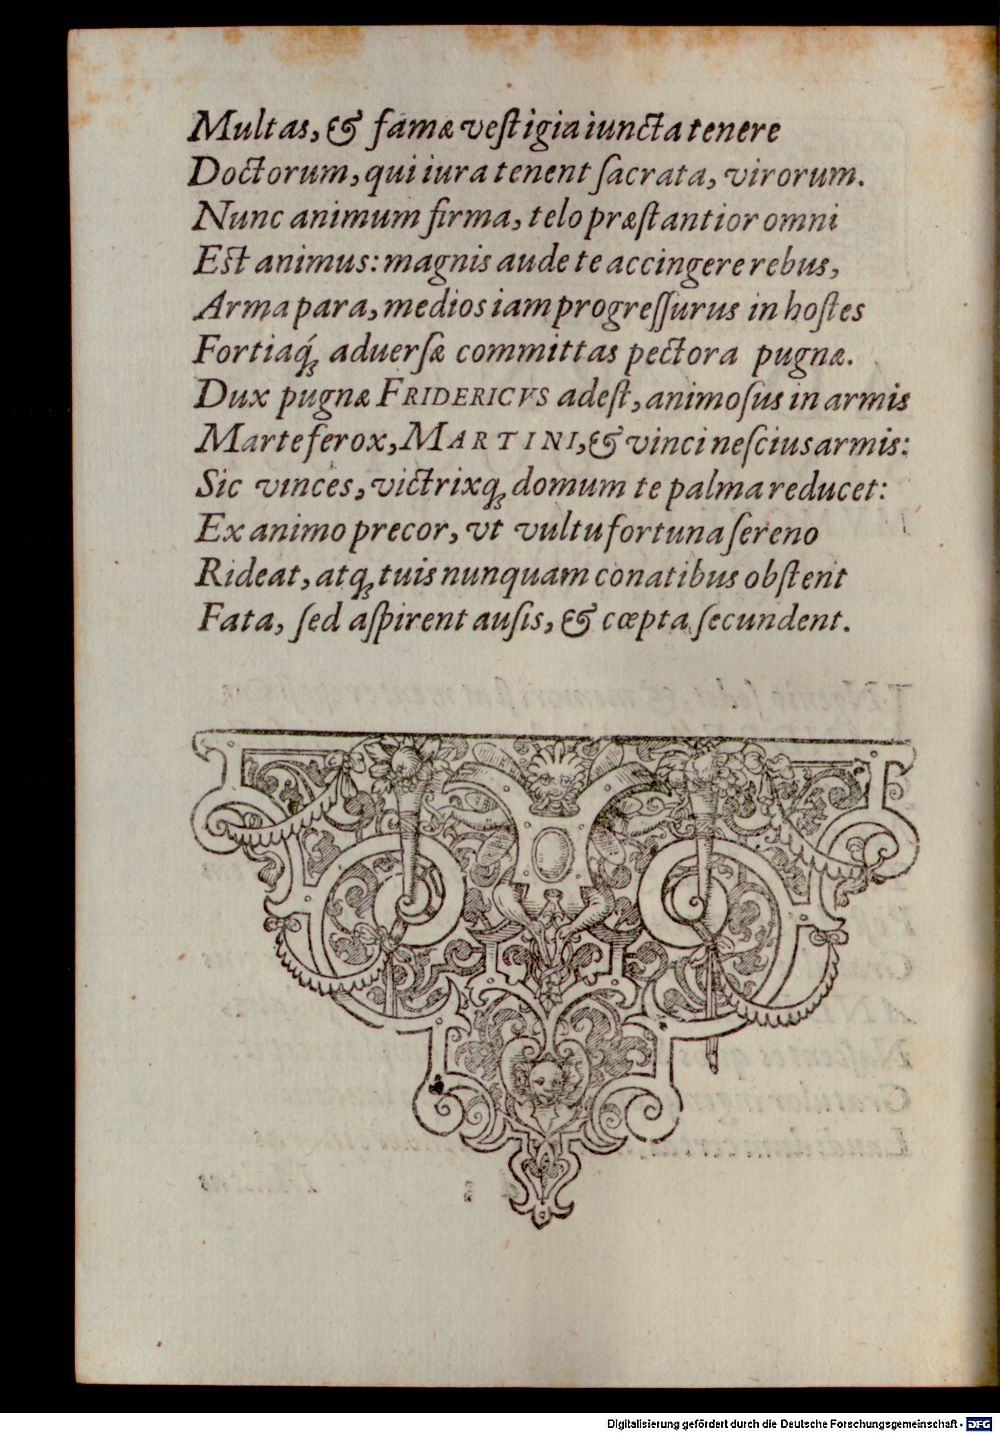 Multas, & famæ veſtigia iuncta tenere
Doctorum, qui iura tenent ſacrata, virorum.
Nunc animum firma, telo præſtantior omni
Eſt animus: magnis aude te accingere rebus,
Arma para, medios iam progreſſurus in hoſtes
Fortiaq́ꝫ aduerſæ committas pectora pugnæ.
Dux pugnæ FRIDERICVS adeſt, animoſus in armis
Marte ferox, MARTINI, & vinci neſcius armis:
Sic vinces, victrixqꝫ domum te palma reducet:
Ex animo precor, vt vultu fortuna ſereno
Rideat, atqꝫ tuis nunquam conatibus obſtent
Fata, ſed aſpirent auſis, & cœpta ſecundent.
Digitalisierung gefördert durch die Deutsche Forschungsgemeinschaft - DFG